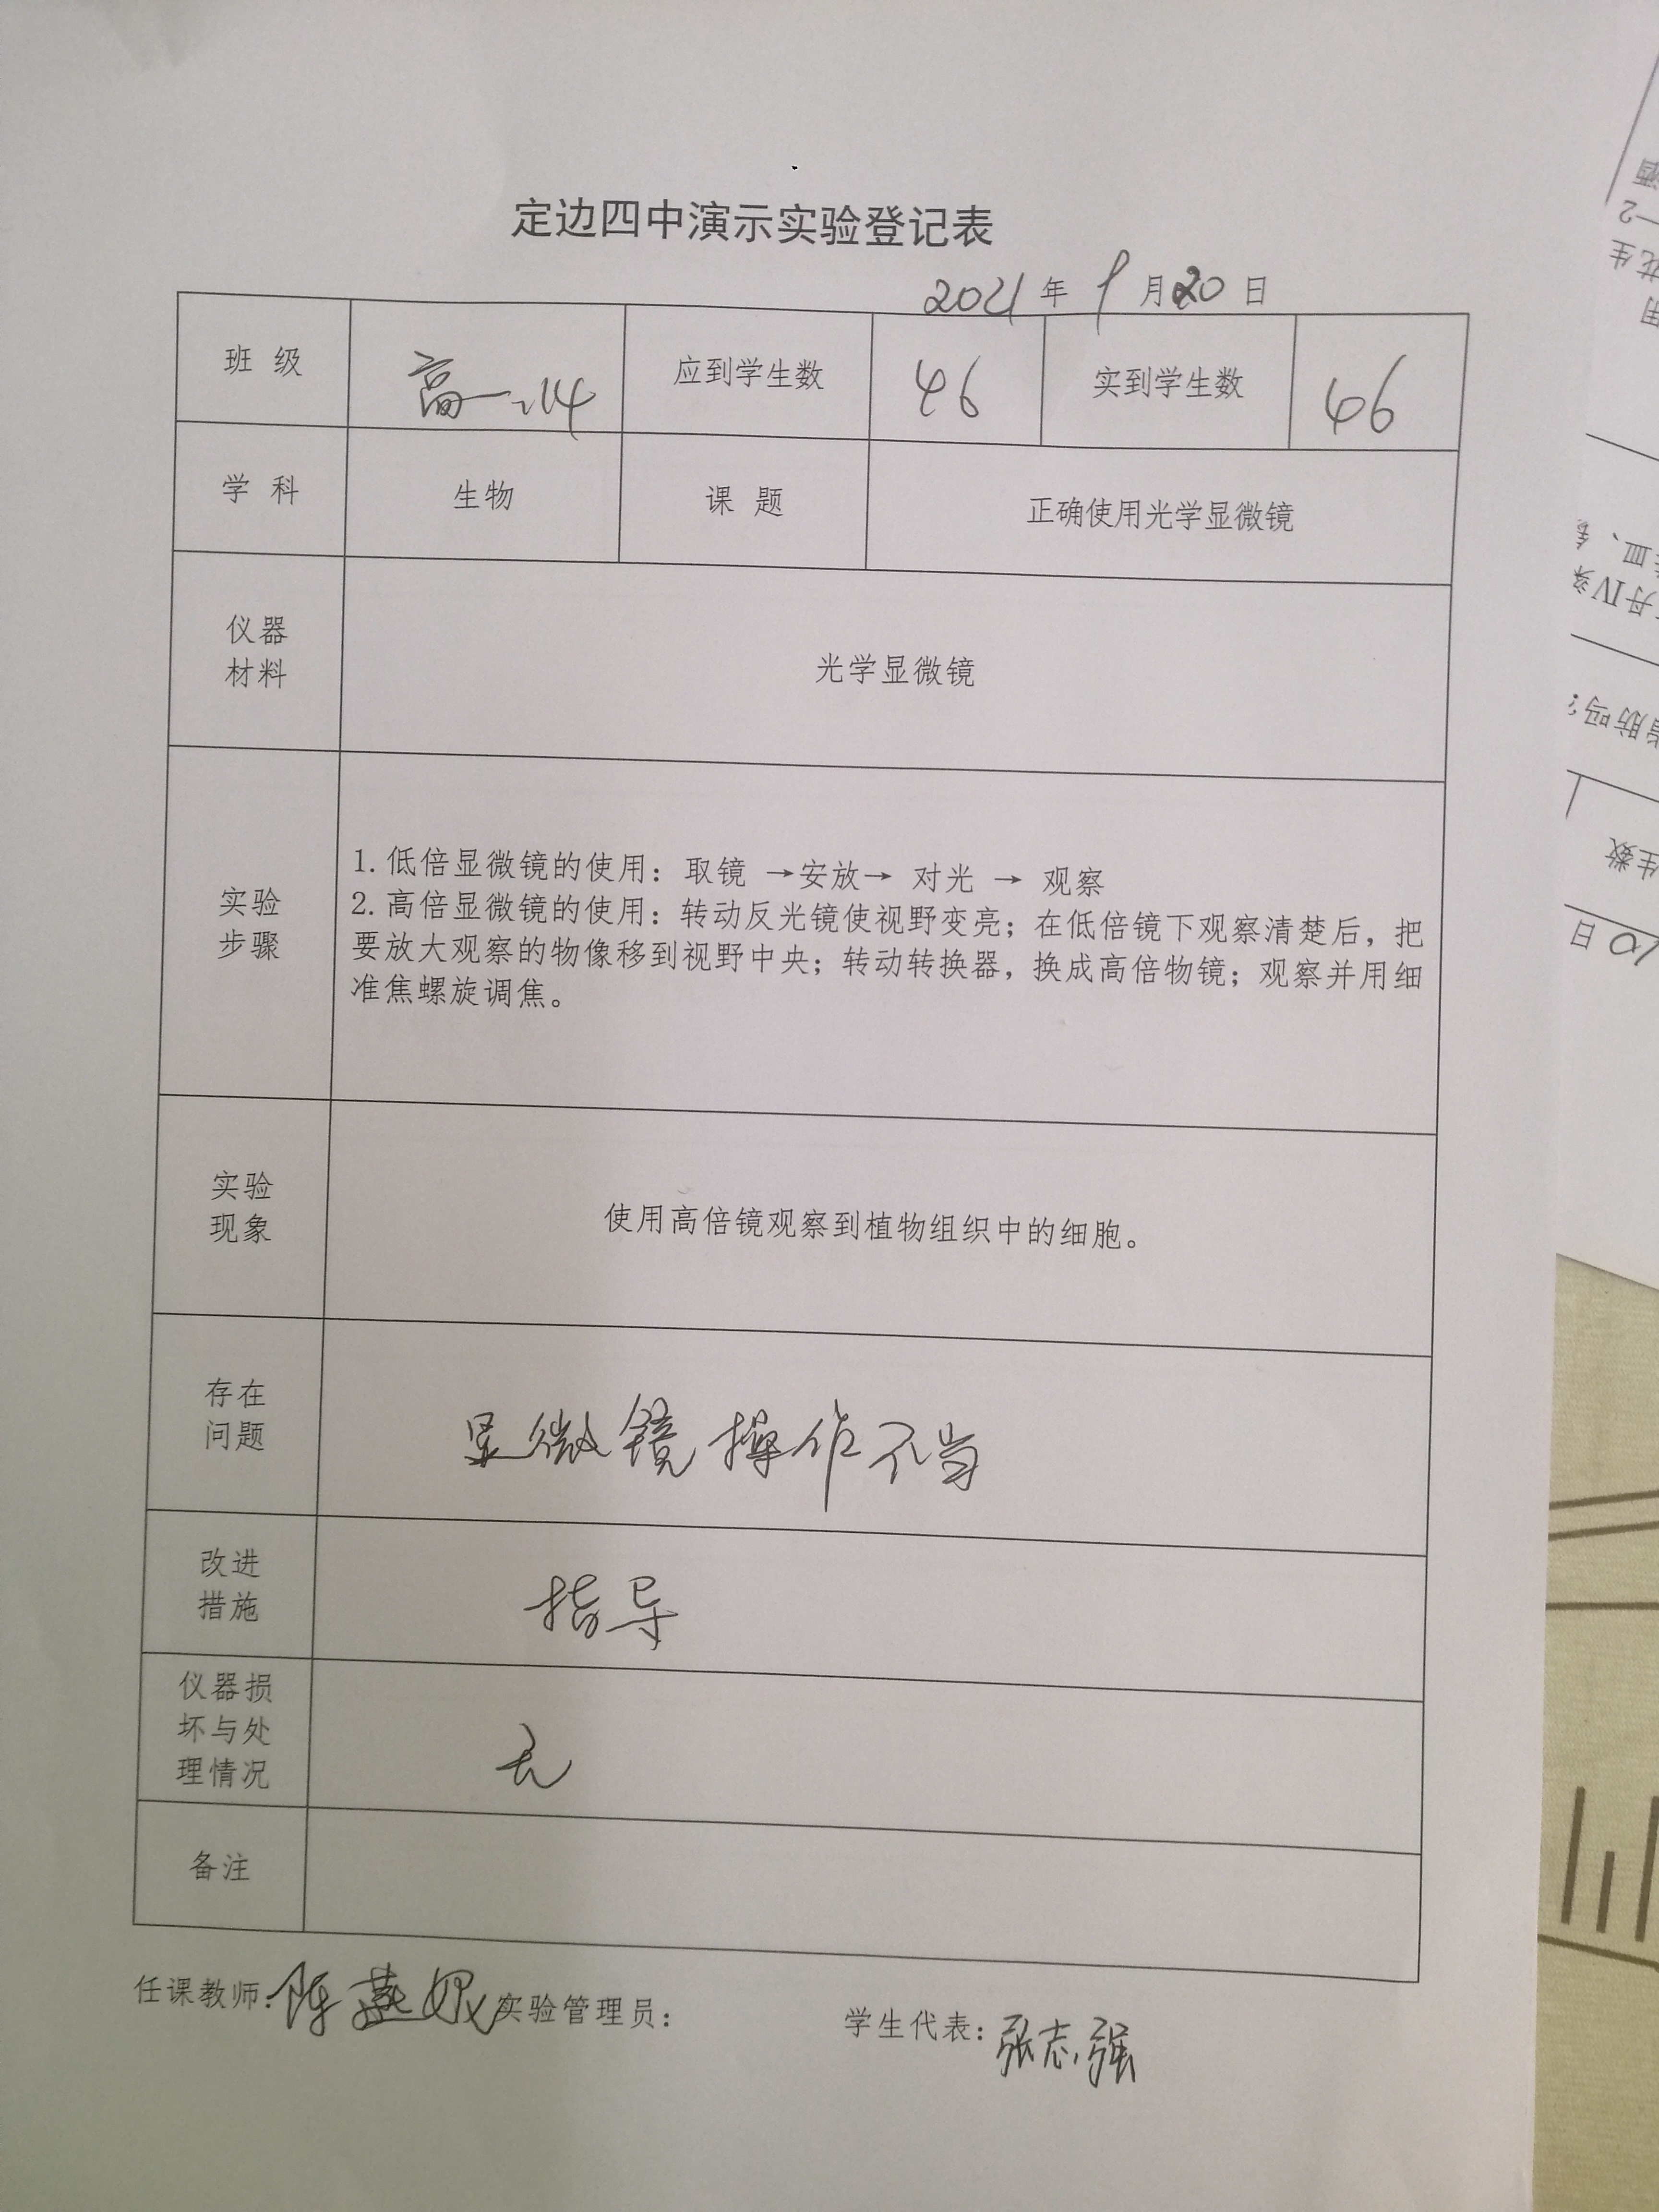 定边四中演示实验登记表
2021年9月20日
班 级 高一、14 应到学生数 46 实到学生数 46
学 科 生物 课 题 正确使用光学显微镜
仪器
材料
光学显微镜
实验
步骤
1.低倍显微镜的使用：取镜 →安放→ 对光 → 观察
2.高倍显微镜的使用：转动反光镜使视野变亮；在低倍镜下观察清楚后，把
要放大观察的物像移到视野中央；转动转换器，换成高倍物镜；观察并用细
准焦螺旋调焦。
实验
现象
使用高倍镜观察到植物组织中的细胞。
存在
问题
显微镜操作不当
改进
措施
指导
仪器损
坏与处
理情况
无
备注
任课教师：陈燕 实验管理员： 学生代表：张志强
生数
10日
脂肪吗？